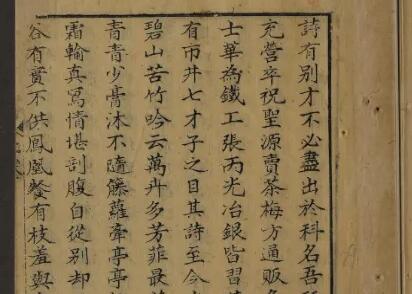 詩有別才不必盡出於科名吾
充營卒祝聖源賣茶梅方通販
士華為鐵工張丙光冶銀皆習
有市井七才子之目其詩至今
碧山苦竹吟云萬卉多芳菲最
青青少膏沐不隨籐蘿牽亭亭
霜輪真寫情堪剖腹自從別却
谷有實不供鳳凰餐有枝羞與